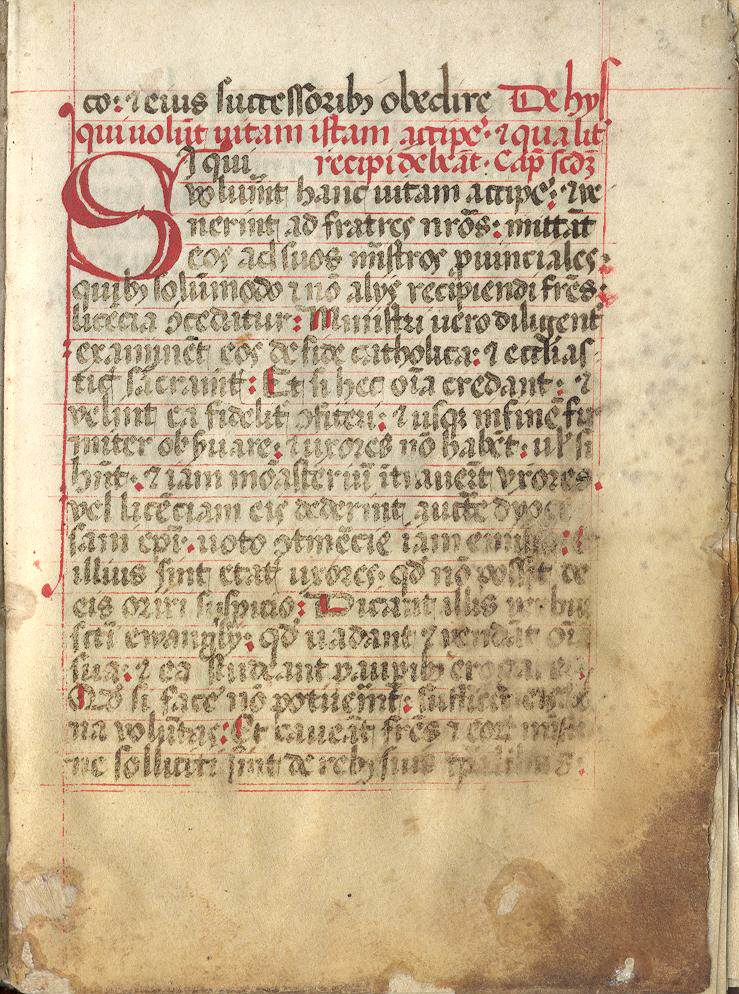 co: ⁊ eius successorib᷒ obedire De hys
qui uolūt uitam istam accipe᷑ ⁊ qualit᷑
recipi debeāt. Cap̄ scd̄ʒ
Si qui
voluerīt hanc uitam accipe᷑: ⁊ ve
nerint ad fratres nr̄os: mittāt
eos ad suos mīstros ꝓuinciales:
quib᷒ solūmodo ⁊ nō alys recipiendi frēs:
licēcia ꝯceditur: Ministri uero diligent᷑
examinēt eos de fide catholica: ⁊ eccl̄ias
tic̄ sacramt̄: Et si hec oīa credant: ⁊
velint ea fidelit᷑ ꝯfiteri: ⁊ usqꝫ in finē fir
miter obseruare: ⁊ uxores nō habēt: ul᷑ si
hn̄t: ⁊ iam mōasteriū ītrauerīt vxores
vel licēciam eis dederint auctē dyoce
sam ep̄i. uoto ꝯtinēcie iam emisso: ⁊
illius sint etat᷑ uxores. qd̄ nō possit de
eis oriri suspicio: Dicant illis ver bū
sc̄ti ewangely: qd̄ uadant ⁊ vendāt oīa
sua: ⁊ ea studeant paupib᷒ erogare
Qd̄ si face᷑ nō potuerīt: sufficit eis bo
na volūtas: Et caueāt frēs ⁊ eor̄ mīstri
ne solliciti sint de reb᷒ suis tp̄alibus: